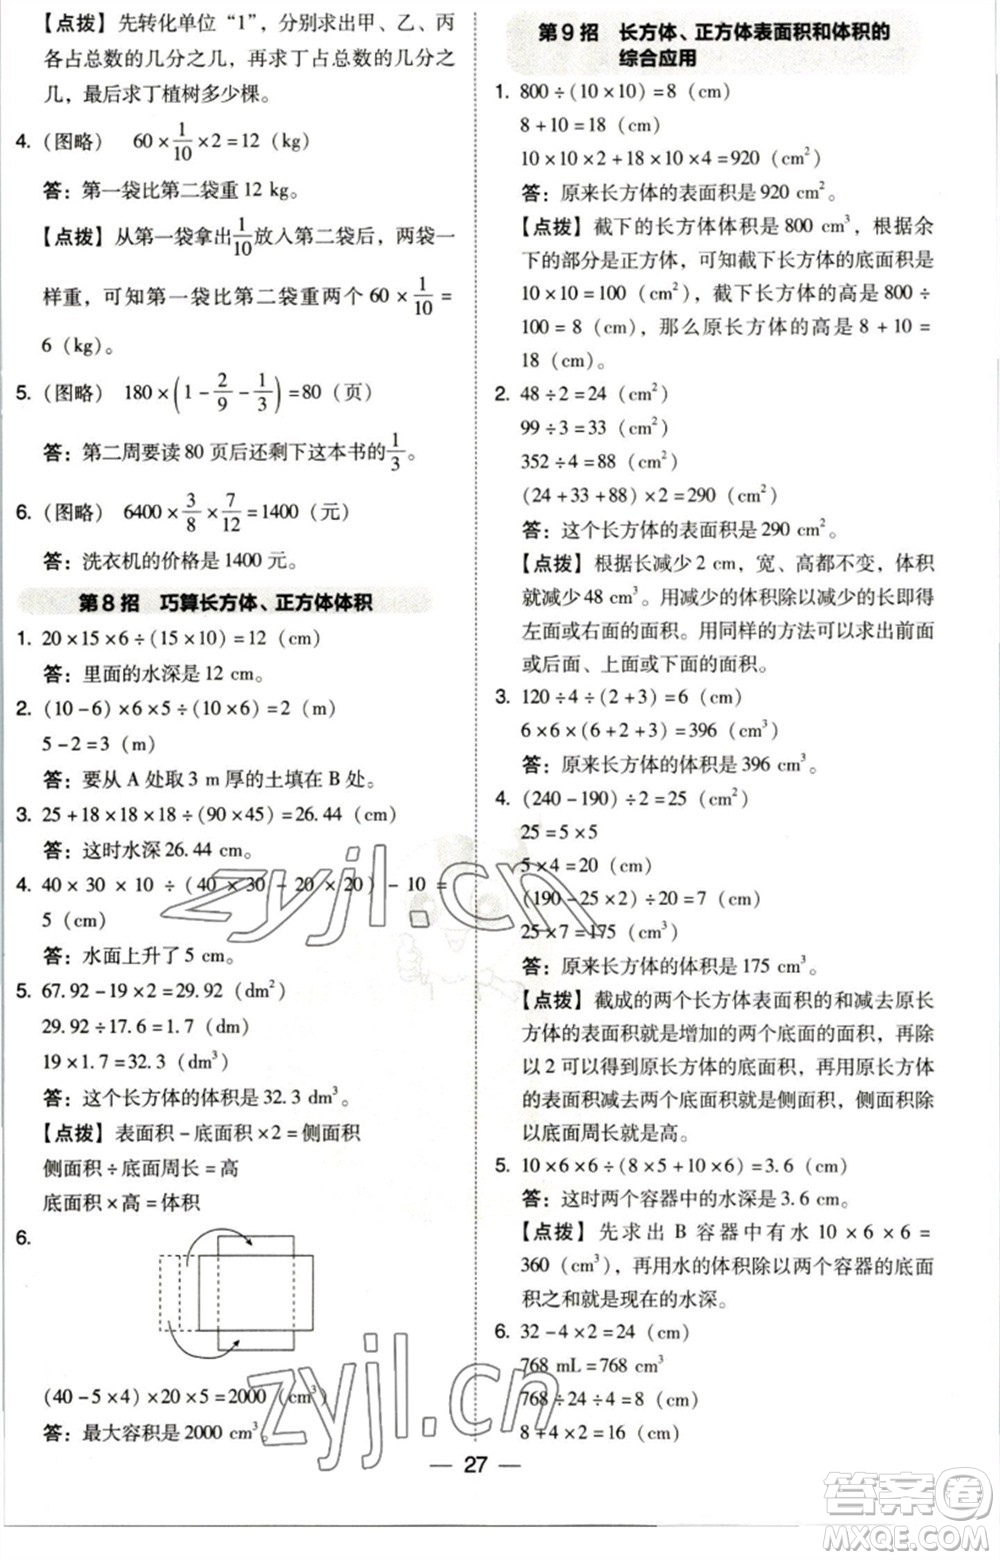 【点拨】先转化单位“1”，分别求出甲、乙、丙
各占总数的几分之几，再求丁占总数的几分之
几，最后求丁植树多少棵。
4. (图略) 60×1/10×2=12(kg)
答：第一袋比第二袋重 12 kg。
【点拨】从第一袋拿出1/10放入第二袋后，两袋一
样重，可知第一袋比第二袋重两个 60×1/10=
6(kg)。
5. (图略) 180×(1-2/9-1/3)=80(页)
答：第二周要读 80 页后还剩下这本书的1/3。
6. (图略) 6400×3/8×7/12=1400(元)
答：洗衣机的价格是 1400 元。
第 8 招 巧算长方体、正方体体积
1. 20×15×6÷(15×10)=12(cm)
答：里面的水深是 12 cm。
2. (10-6)×6×5÷(10×6)=2(m)
5-2=3(m)
答：要从 A 处取 3 m 厚的土填在 B 处。
3. 25+18×18×18÷(90×45)=26.44(cm)
答：这时水深 26.44 cm。
4. 40×30×10÷(40×30-20×20)-10=
5(cm)
答：水面上升了 5 cm。
5. 67.92-19×2=29.92(dm²)
29.92÷17.6=1.7(dm)
19×1.7=32.3(dm³)
答：这个长方体的体积是 32.3 dm³。
【点拨】表面积-底面积×2=侧面积
侧面积÷底面周长=高
底面积×高=体积
6.
(40-5×4)×20×5=2000(cm³)
答：最大容积是 2000 cm³。
第 9 招 长方体、正方体表面积和体积的
综合应用
1. 800÷(10×10)=8(cm)
8+10=18(cm)
10×10×2+18×10×4=920(cm²)
答：原来长方体的表面积是 920 cm²。
【点拨】截下的长方体体积是 800 cm³，根据余
下的部分是正方体，可知截下长方体的底面积是
10×10=100(cm²)，截下长方体的高是 800÷
100=8(cm)，那么原长方体的高是 8+10=
18(cm)。
2. 48÷2=24(cm²)
99÷3=33(cm²)
352÷4=88(cm²)
(24+33+88)×2=290(cm²)
答：这个长方体的表面积是 290 cm²。
【点拨】根据长减少 2 cm，宽、高都不变，体积
就减少 48 cm³。用减少的体积除以减少的长即得
左面或右面的面积。用同样的方法可以求出前面
或后面、上面或下面的面积。
3. 120÷4÷(2+3)=6(cm)
6×6×(6+2+3)=396(cm³)
答：原来长方体的体积是 396 cm³。
4. (240-190)÷2=25(cm²)
25=5×5
5×4=20(cm)
(190-25×2)÷20=7(cm)
25×7=175(cm³)
答：原来长方体的体积是 175 cm³。
【点拨】截成的两个长方体表面积的和减去原长
方体的表面积就是增加的两个底面的面积，再除
以 2 可以得到原长方体的底面积，再用原长方体
的表面积减去两个底面积就是侧面积，侧面积除
以底面周长就是高。
5. 10×6×6÷(8×5+10×6)=3.6(cm)
答：这时两个容器中的水深是 3.6 cm。
【点拨】先求出 B 容器中有水 10×6×6=
360(cm³)，再用水的体积除以两个容器的底面
积之和就是现在的水深。
6. 32-4×2=24(cm)
768 mL=768 cm³
768÷24÷4=8(cm)
8+4×2=16(cm)
27
zyjl.cn
zyjl.cn
答案圈
MXQE.COM